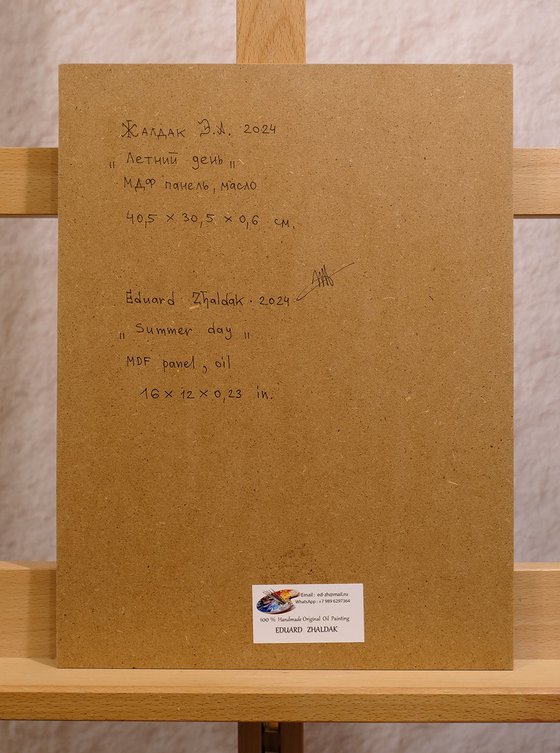 Жалдак Э.А. 2024
„ Летний день "
МДФ панель, масло
40,5 × 30,5 × 0,6 см.
Eduard Zhaldak. 2024
„ Summer day "
MDF panel, oil
16 × 12 × 0,23 in.
Email: ed-zh@mail.ru
WhatsApp: +7 989 6297364
100 % Handmade Original Oil Painting
EDUARD ZHALDAK